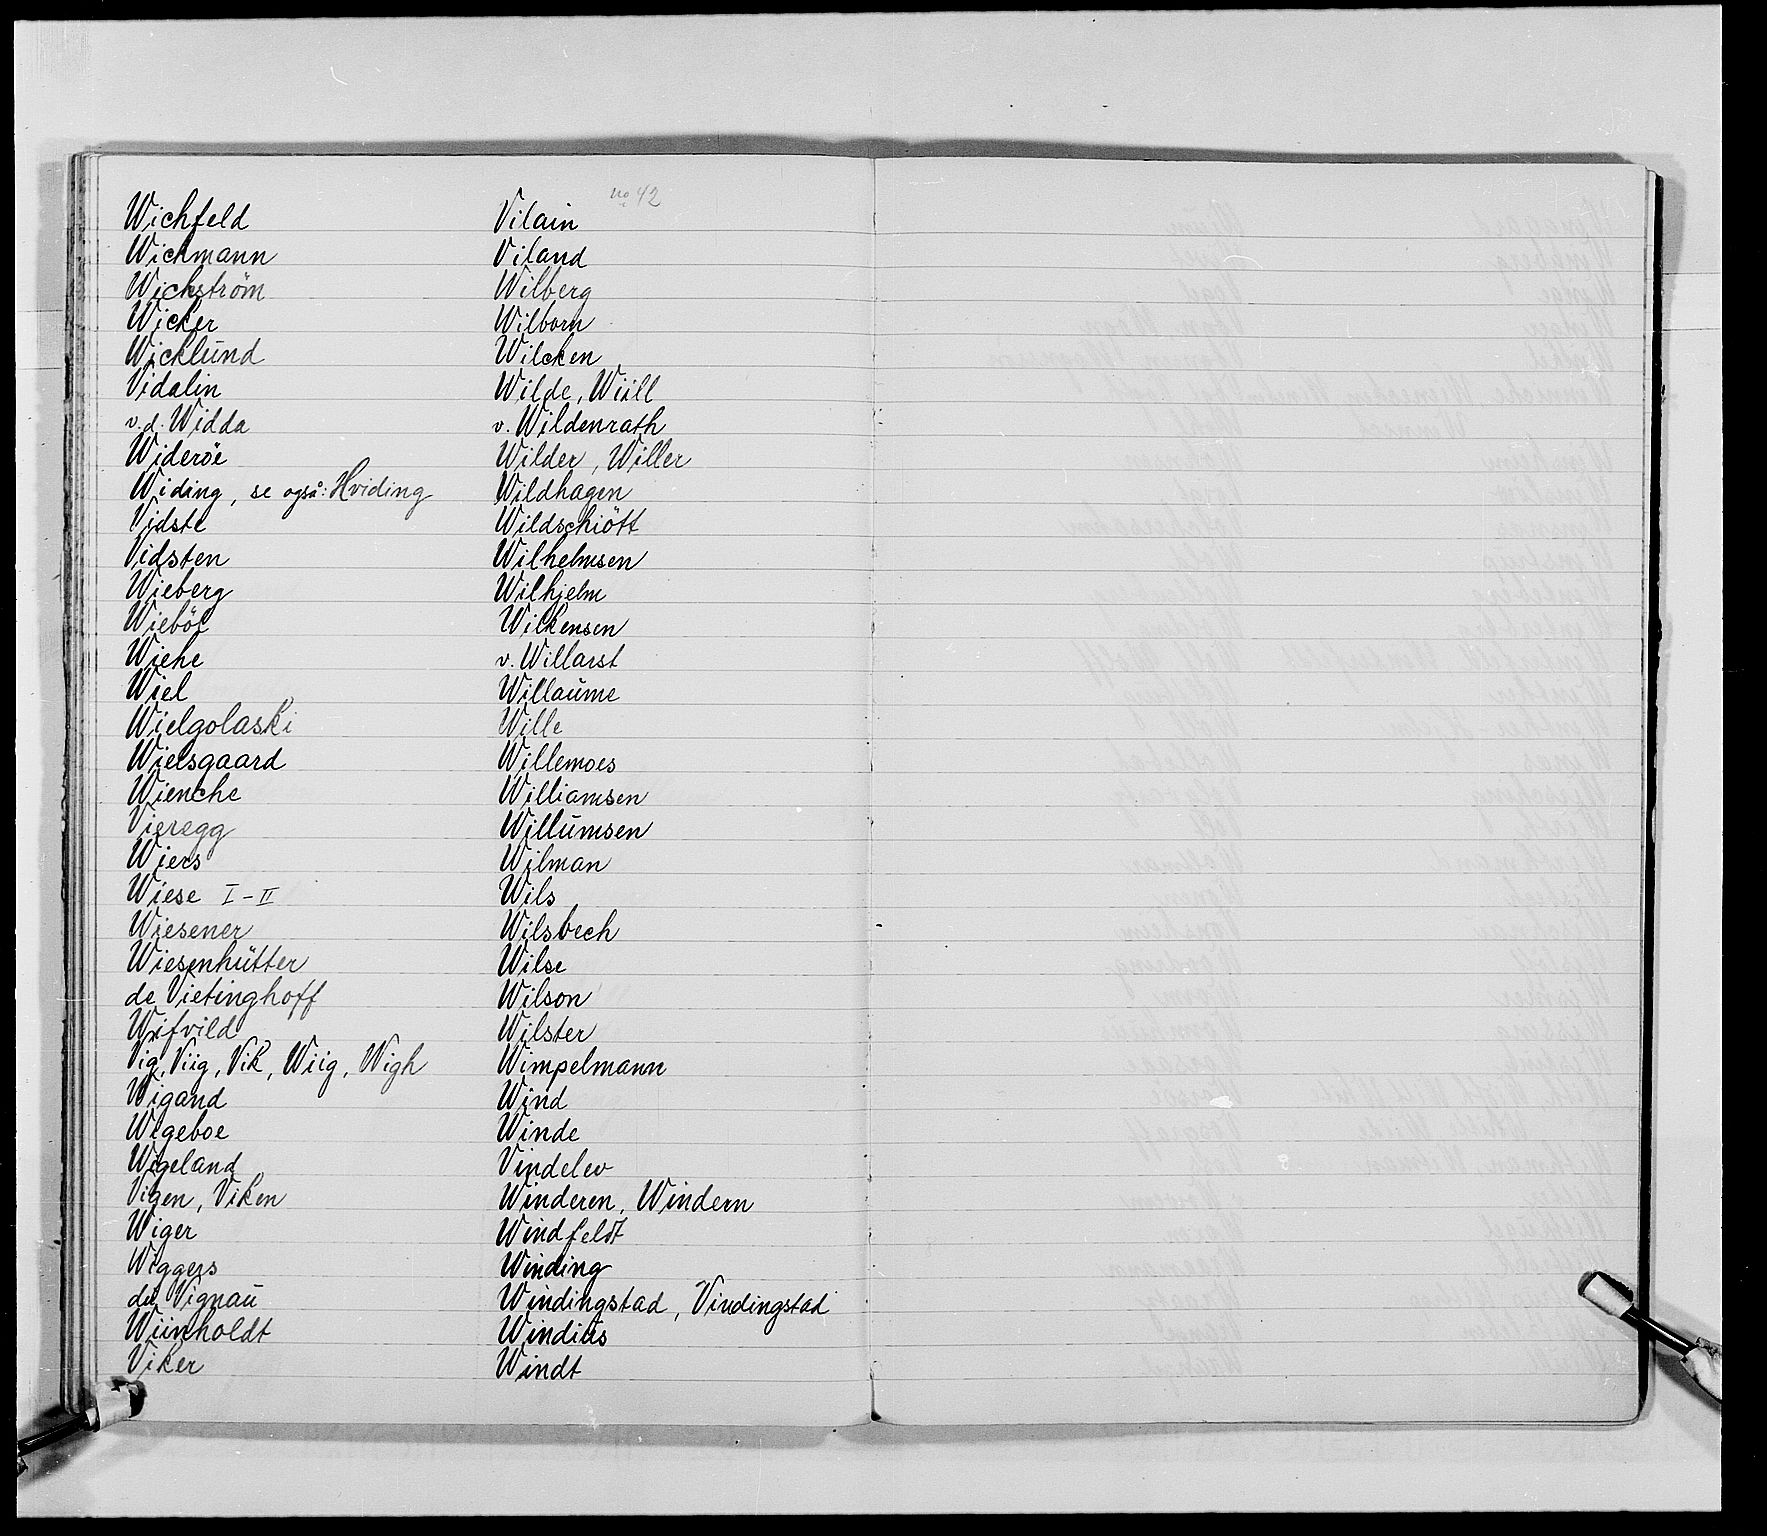 no 42
Wichfeld
Wichmann
Wickström
Wicker
Wicklund
Vidalin
v.d. Widda
Wideröe
Widing, se også: Hviding
Vidste
Vidsten
Wieberg
Wieböe
Wiehe
Wiel
Wielgolaski
Wielsgaard
Wienche
Vieregg
Wiers
Wiese I-II
Wiesener
Wiesenhütter
de Vietinghoff
Wifvild
Vig, Viig, Vik, Wiig, Wigh
Wigand
Wigeboe
Wigeland
Vigen, Viken
Wiger
Wiggers
du Vignau
Wiinholdt
Viker
Vilain
Viland
Wilberg
Wilborn
Wilcken
Wilde, Wiill
v. Wildenrath
Wilder, Willer
Wildhagen
Wildschiött
Wilhelmsen
Wilhjelm
Wilkensen
v. Willarst
Willaume
Wille
Willemoes
Williamsen
Willumsen
Wilman
Wils
Wilsbech
Wilse
Wilson
Wilster
Wimpelmann
Wind
Winde
Vindelev
Winderen, Windern
Windfeldt
Winding
Windingstad, Vindingstad
Windius
Windt